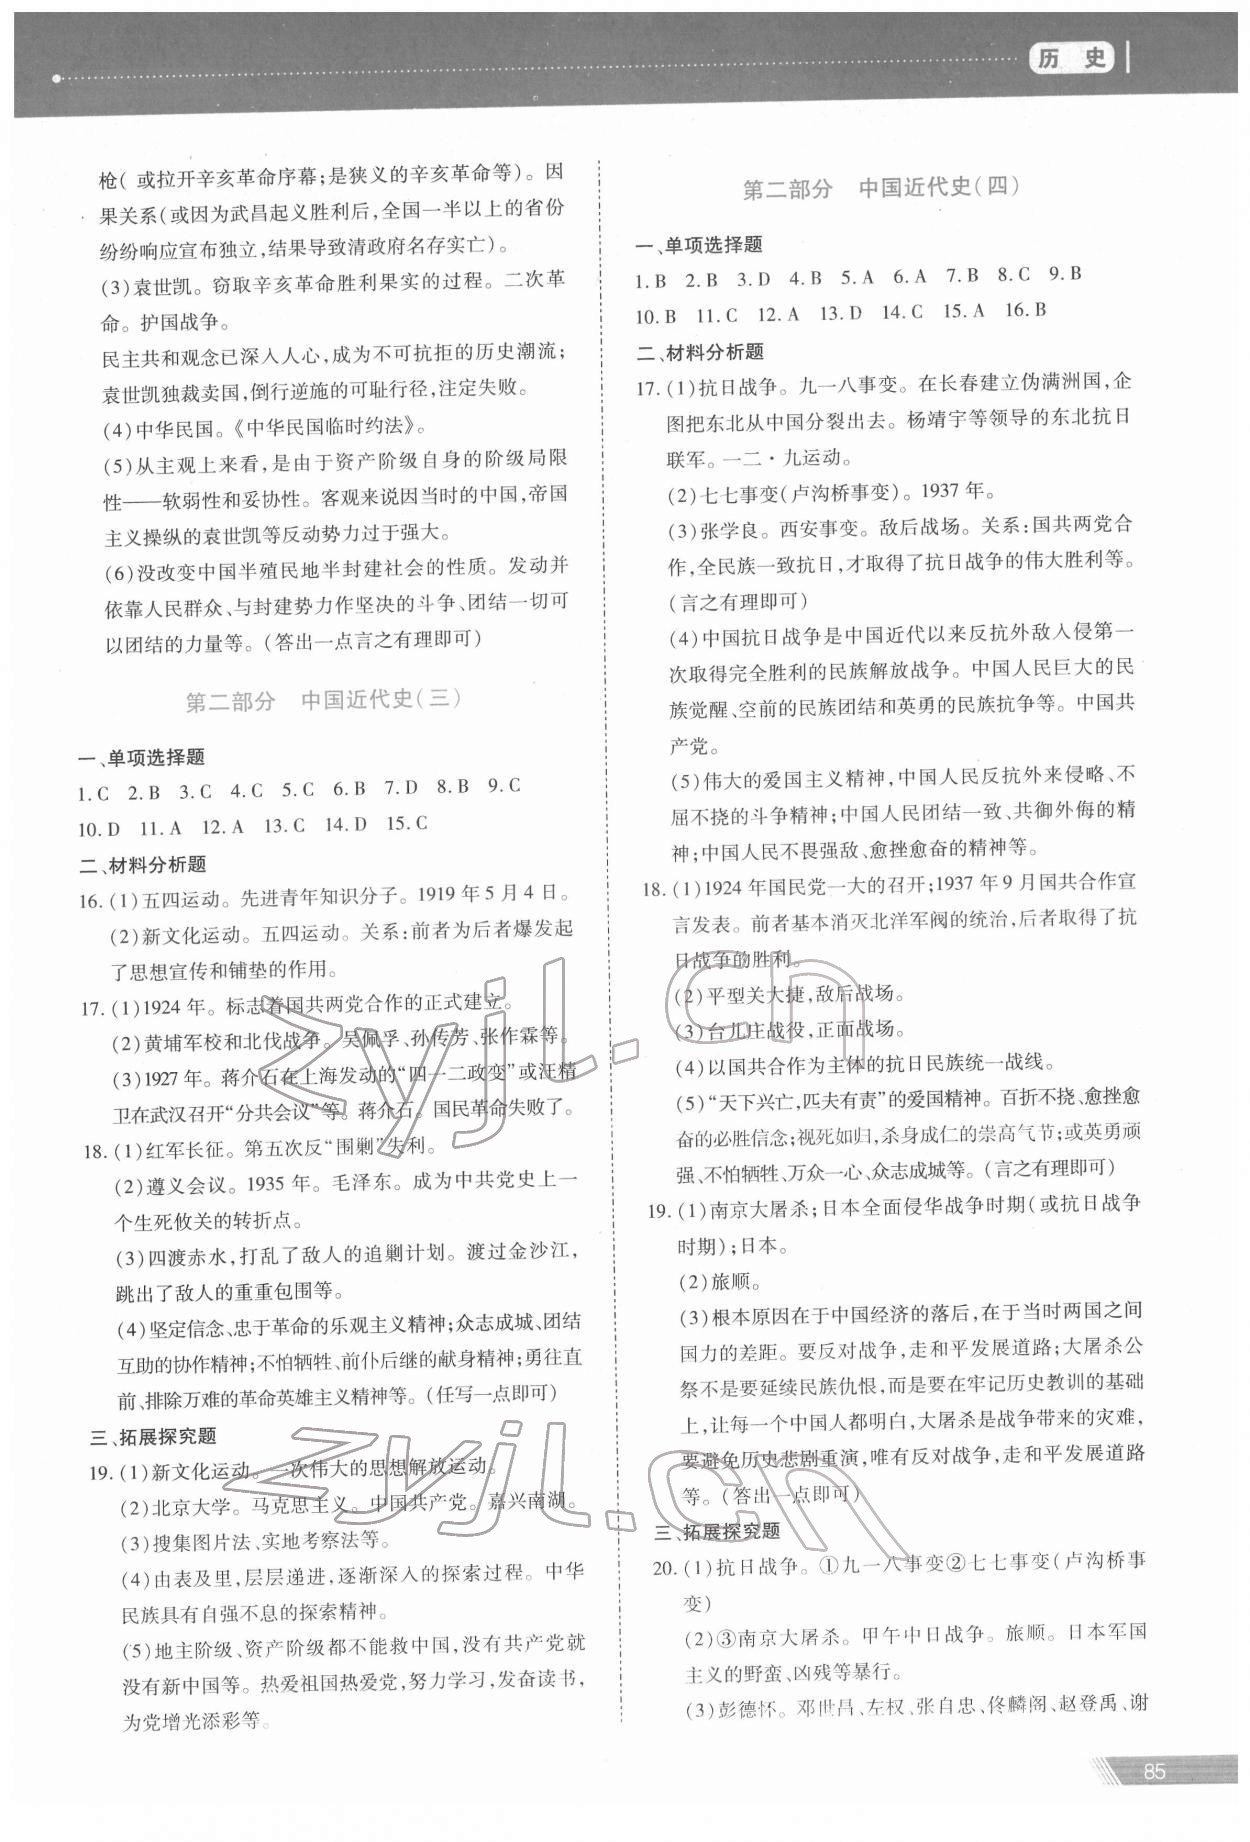 历 史
枪( 或拉开辛亥革命序幕;是狭义的辛亥革命等)。因
果关系(或因为武昌起义胜利后,全国一半以上的省份
纷纷响应宣布独立,结果导致清政府名存实亡)。
(3)袁世凯。窃取辛亥革命胜利果实的过程。二次革
命。护国战争。
民主共和观念已深入人心,成为不可抗拒的历史潮流;
袁世凯独裁卖国,倒行逆施的可耻行径,注定失败。
(4)中华民国。《中华民国临时约法》。
(5)从主观上来看,是由于资产阶级自身的阶级局限
性——软弱性和妥协性。客观来说因当时的中国,帝国
主义操纵的袁世凯等反动势力过于强大。
(6)没改变中国半殖民地半封建社会的性质。发动并
依靠人民群众、与封建势力作坚决的斗争、团结一切可
以团结的力量等。(答出一点言之有理即可)
第二部分 中国近代史(三)
一、单项选择题
1. C 2. B 3. C 4. C 5. C 6. B 7. D 8. B 9. C
10. D 11. A 12. A 13. C 14. D 15. C
二、材料分析题
16. (1)五四运动。先进青年知识分子。1919 年 5 月 4 日。
(2)新文化运动。五四运动。关系:前者为后者爆发起
了思想宣传和铺垫的作用。
17. (1)1924 年。标志着国共两党合作的正式建立。
(2)黄埔军校和北伐战争。吴佩孚、孙传芳、张作霖等。
(3)1927 年。蒋介石在上海发动的“四一二政变”或汪精
卫在武汉召开“分共会议”等。蒋介石。国民革命失败了。
18. (1)红军长征。第五次反“围剿”失利。
(2)遵义会议。1935 年。毛泽东。成为中共党史上一
个生死攸关的转折点。
(3)四渡赤水,打乱了敌人的追剿计划。渡过金沙江,
跳出了敌人的重重包围等。
(4)坚定信念、忠于革命的乐观主义精神;众志成城、团结
互助的协作精神;不怕牺牲、前仆后继的献身精神;勇往直
前、排除万难的革命英雄主义精神等。(任写一点即可)
三、拓展探究题
19. (1)新文化运动。一次伟大的思想解放运动。
(2)北京大学。马克思主义。中国共产党。嘉兴南湖。
(3)搜集图片法、实地考察法等。
(4)由表及里,层层递进、逐渐深入的探索过程。中华
民族具有自强不息的探索精神。
(5)地主阶级、资产阶级都不能救中国,没有共产党就
没有新中国等。热爱祖国热爱党,努力学习,发奋读书,
为党增光添彩等。
第二部分 中国近代史(四)
一、单项选择题
1. B 2. B 3. D 4. B 5. A 6. A 7. B 8. C 9. B
10. B 11. C 12. A 13. D 14. C 15. A 16. B
二、材料分析题
17. (1)抗日战争。九一八事变。在长春建立伪满洲国,企
图把东北从中国分裂出去。杨靖宇等领导的东北抗日
联军。一二·九运动。
(2)七七事变(卢沟桥事变)。1937 年。
(3)张学良。西安事变。敌后战场。关系:国共两党合
作,全民族一致抗日,才取得了抗日战争的伟大胜利等。
(言之有理即可)
(4)中国抗日战争是中国近代以来反抗外敌入侵第一
次取得完全胜利的民族解放战争。中国人民巨大的民
族觉醒、空前的民族团结和英勇的民族抗争等。中国共
产党。
(5)伟大的爱国主义精神,中国人民反抗外来侵略、不
屈不挠的斗争精神;中国人民团结一致、共御外侮的精
神;中国人民不畏强敌、愈挫愈奋的精神等。
18. (1)1924 年国民党一大的召开;1937 年 9 月国共合作宣
言发表。前者基本消灭北洋军阀的统治,后者取得了抗
日战争的胜利。
(2)平型关大捷,敌后战场。
(3)台儿庄战役,正面战场。
(4)以国共合作为主体的抗日民族统一战线。
(5)“天下兴亡,匹夫有责”的爱国精神。百折不挠、愈挫愈
奋的必胜信念;视死如归,杀身成仁的崇高气节;或英勇顽
强、不怕牺牲、万众一心、众志成城等。(言之有理即可)
19. (1)南京大屠杀;日本全面侵华战争时期(或抗日战争
时期);日本。
(2)旅顺。
(3)根本原因在于中国经济的落后,在于当时两国之间
国力的差距。要反对战争,走和平发展道路;大屠杀公
祭不是要延续民族仇恨,而是要在牢记历史教训的基础
上,让每一个中国人都明白,大屠杀是战争带来的灾难,
要避免历史悲剧重演,唯有反对战争,走和平发展道路
等。(答出一点即可)
三、拓展探究题
20. (1)抗日战争。①九一八事变②七七事变(卢沟桥事
变)
(2)③南京大屠杀。甲午中日战争。旅顺。日本军国
主义的野蛮、凶残等暴行。
(3)彭德怀。邓世昌、左权、张自忠、佟麟阁、赵登禹、谢
85
zyjl.cn
zyjl.cn